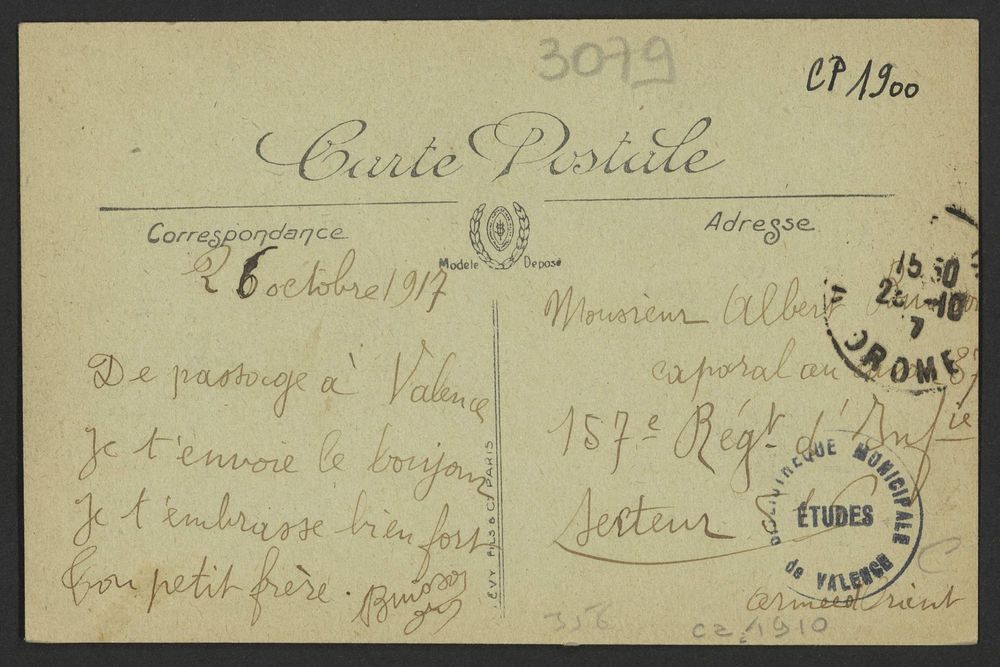 3079
CP 1900
Carte Postale
Correspondance
Adresse
Modèle Déposé
26 octobre 1917
De passage à Valence
Je t'envoie le bonjour
Je t'embrasse bien fort
Ton petit frère.
LEVY FILS & Cie PARIS
Monsieur Albert
caporal au
157e Régt d'Infie
Secteur
armée d'Orient
15 50
-10
7
DROME
BIBLIOTHEQUE MUNICIPALE
ÉTUDES
de VALENCE
356
CZ 1910
C